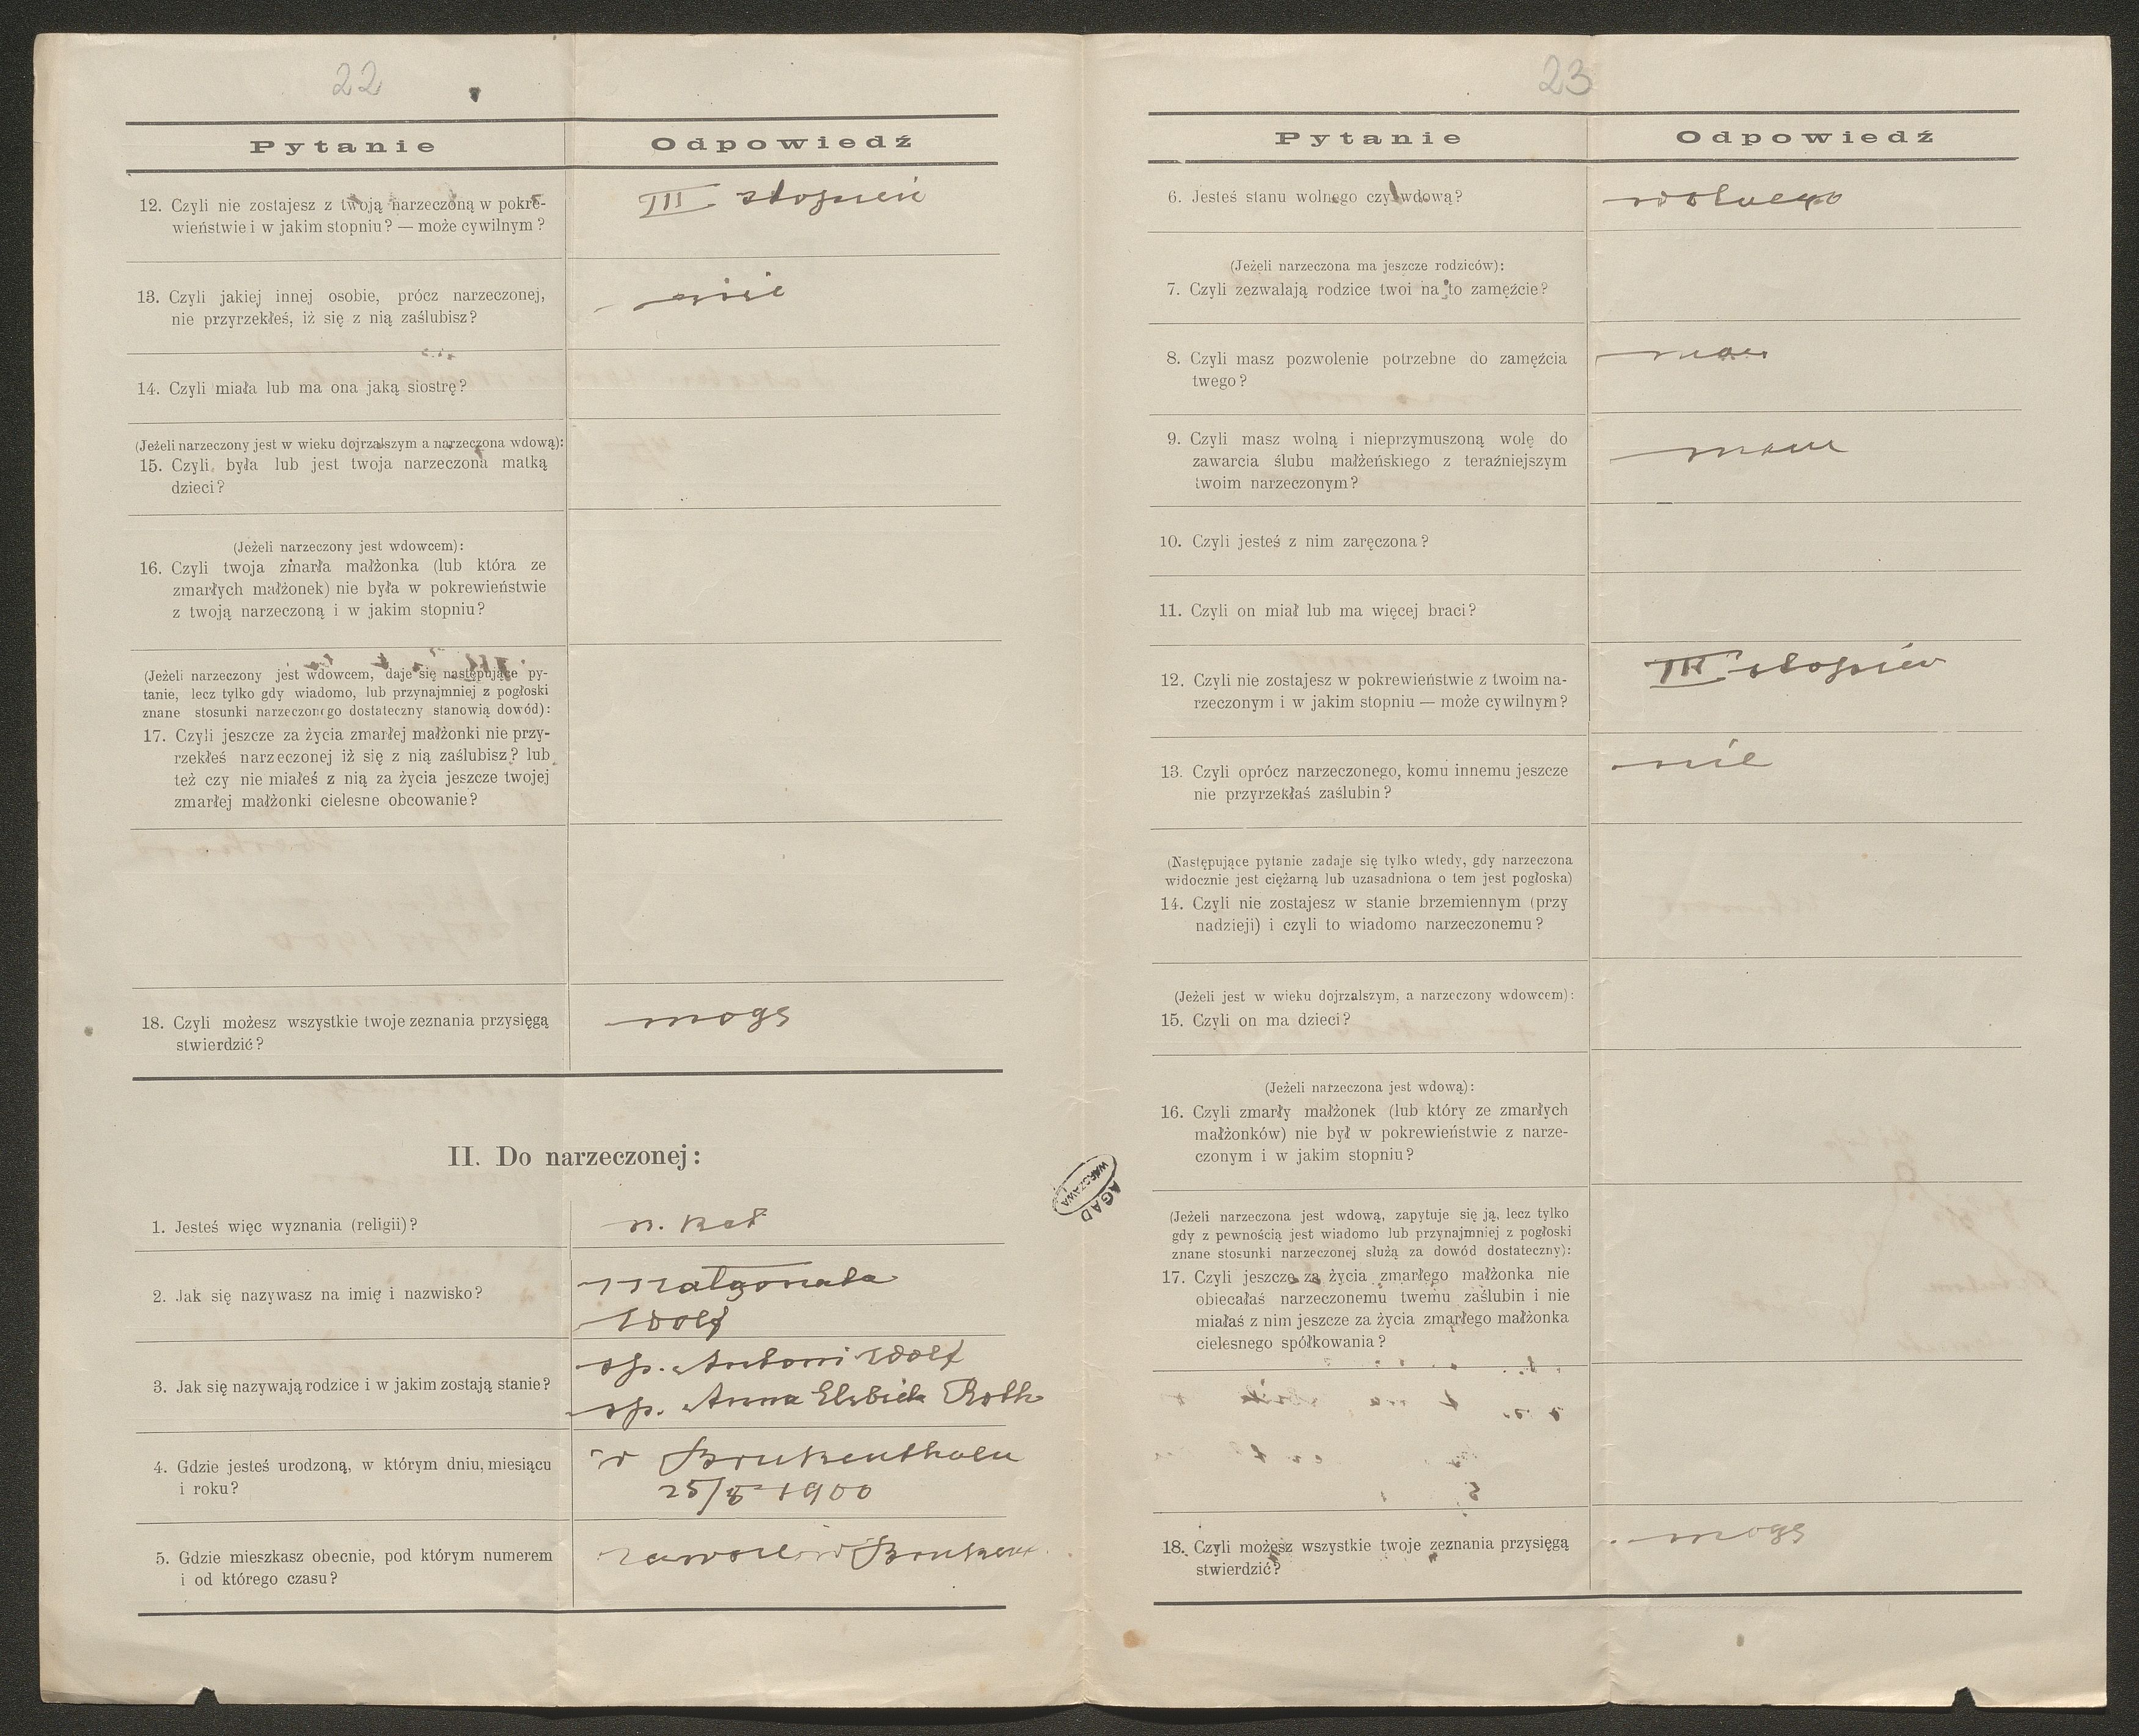 22
Pytanie
Odpowiedź
12. Czyli nie zostajesz z twoją narzeczoną w pokre-
wieństwie i w jakim stopniu? — może cywilnym?
III stopień
13. Czyli jakiej innej osobie, prócz narzeczonej,
nie przyrzekłeś, iż się z nią zaślubisz?
nie
14. Czyli miała lub ma ona jaką siostrę?
(Jeżeli narzeczony jest w wieku dojrzalszym a narzeczona wdową):
15. Czyli była lub jest twoja narzeczona matką
dzieci?
(Jeżeli narzeczony jest wdowcem):
16. Czyli twoja zmarła małżonka (lub która ze
zmarłych małżonek) nie była w pokrewieństwie
z twoją narzeczoną i w jakim stopniu?
(Jeżeli narzeczony jest wdowcem, daje się następujące py-
tanie, lecz tylko gdy wiadomo, lub przynajmniej z pogłoski
znane stosunki narzeczonego dostateczny stanowią dowód):
17. Czyli jeszcze za życia zmarłej małżonki nie przy-
rzekłeś narzeczonej iż się z nią zaślubisz? lub
też czy nie miałeś z nią za życia jeszcze twojej
zmarłej małżonki cielesne obcowanie?
18. Czyli możesz wszystkie twoje zeznania przysięgą
stwierdzić?
mogę
II. Do narzeczonej:
1. Jesteś więc wyznania (religii)?
r. kat
2. Jak się nazywasz na imię i nazwisko?
Małgorzata
Wolf
3. Jak się nazywają rodzice i w jakim zostają stanie?
śp. Antoni Wolf
śp. Anna Elżbieta Roth
4. Gdzie jesteś urodzoną, w którym dniu, miesiącu
i roku?
w Brukenthalu
25/8 1900
5. Gdzie mieszkasz obecnie, pod którym numerem
i od którego czasu?
zawsze w Brukent.
AGAD
WARSZAWA
23
Pytanie
Odpowiedź
6. Jesteś stanu wolnego czy wdową?
wolnego
(Jeżeli narzeczona ma jeszcze rodziców):
7. Czyli zezwalają rodzice twoi na to zamęźcie?
8. Czyli masz pozwolenie potrzebne do zamęźcia
twego?
mam
9. Czyli masz wolną i nieprzymuszoną wolę do
zawarcia ślubu małżeńskiego z teraźniejszym
twoim narzeczonym?
mam
10. Czyli jesteś z nim zaręczona?
11. Czyli on miał lub ma więcej braci?
12. Czyli nie zostajesz w pokrewieństwie z twoim na-
rzeczonym i w jakim stopniu — może cywilnym?
III stopień
13. Czyli oprócz narzeczonego, komu innemu jeszcze
nie przyrzekłaś zaślubin?
nie
(Następujące pytanie zadaje się tylko wtedy, gdy narzeczona
widocznie jest ciężarną lub uzasadniona o tem jest pogłoska)
14. Czyli nie zostajesz w stanie brzemiennym (przy
nadzieji) i czyli to wiadomo narzeczonemu?
(Jeżeli jest w wieku dojrzalszym, a narzeczony wdowcem):
15. Czyli on ma dzieci?
(Jeżeli narzeczona jest wdową):
16. Czyli zmarły małżonek (lub który ze zmarłych
małżonków) nie był w pokrewieństwie z narze-
czonym i w jakim stopniu?
(Jeżeli narzeczona jest wdową, zapytuje się ją, lecz tylko
gdy z pewnością jest wiadomo lub przynajmniej z pogłoski
znane stosunki narzeczonej służą za dowód dostateczny):
17. Czyli jeszcze za życia zmarłego małżonka nie
obiecałaś narzeczonemu twemu zaślubin i nie
miałaś z nim jeszcze za życia zmarłego małżonka
cielesnego spółkowania?
18. Czyli możesz wszystkie twoje zeznania przysięgą
stwierdzić?
mogę